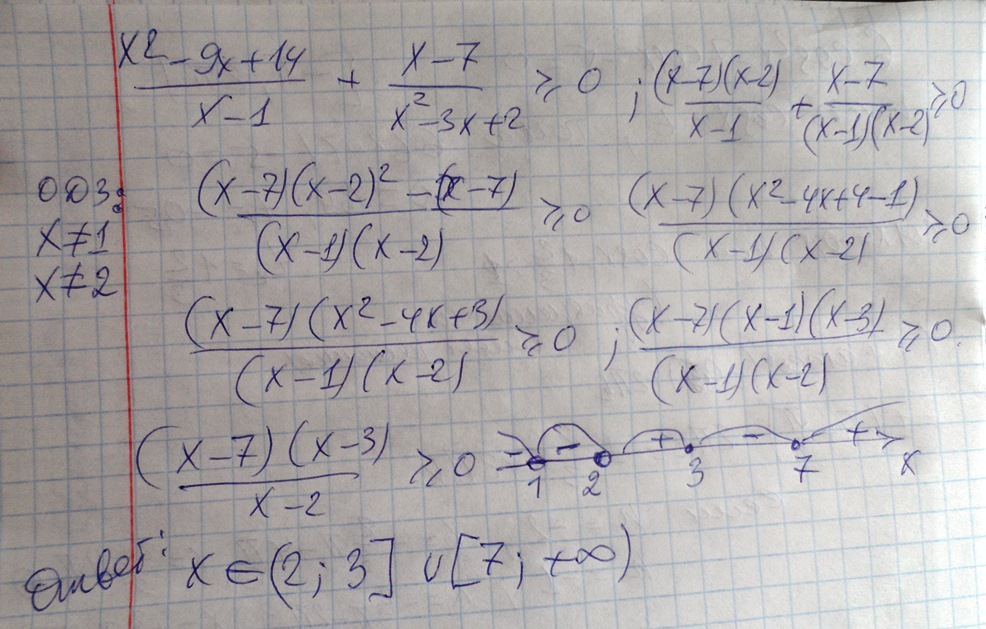 (x²-9x+14)/(x-1) + (x-7)/(x²-3x+2) ≥ 0 ; (x-7)(x-2)/(x-1) + (x-7)/((x-1)(x-2)) ≥ 0
ОДЗ:
x≠1
x≠2
((x-7)(x-2)² - (x-7))/((x-1)(x-2)) ≥ 0 (x-7)(x²-4x+4-1)/((x-1)(x-2) ≥ 0
(x-7)(x²-4x+3)/((x-1)(x-2)) ≥ 0 ; (x-7)(x-1)(x-3)/((x-1)(x-2)) ≥ 0.
(x-7)(x-3)/(x-2) ≥ 0
- - + - +
1 2 3 7 x
Ответ: x ∈ (2; 3] ∪ [7; +∞)